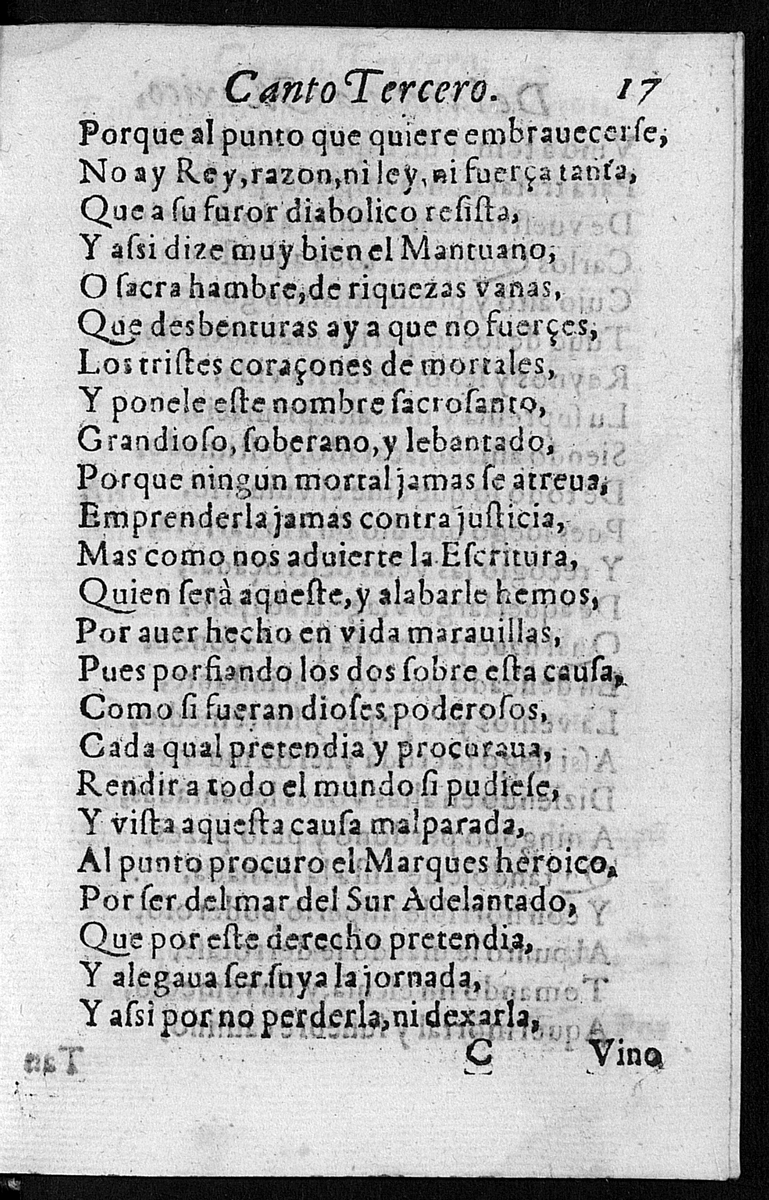 Canto Tercero. 17
Porque al punto que quiere embrauecerſe,
No ay Rey, razon, ni ley, ni fuerça tanta,
Que a ſu furor diabolico reſiſta,
Y aſsi dize muy bien el Mantuano,
O ſacra hambre, de riquezas vanas,
Que desbenturas ay a que no fuerçes,
Los triſtes coraçones de mortales,
Y ponele eſte nombre ſacroſanto,
Grandioſo, ſoberano, y lebantado,
Porque ningun mortal jamas ſe atreua,
Emprenderla jamas contra juſticia,
Mas como nos aduierte la Eſcritura,
Quien ſerà aqueſte, y alabarle hemos,
Por auer hecho en vida marauillas,
Pues porfiando los dos ſobre eſta cauſa,
Como ſi fueran dioſes poderoſos,
Cada qual pretendia y procuraua,
Rendir a todo el mundo ſi pudieſe,
Y viſta aqueſta cauſa malparada,
Al punto procuro el Marques heroico,
Por ſer del mar del Sur Adelantado,
Que por eſte derecho pretendia,
Y alegaua ſer ſuya la jornada,
Y aſsi por no perderla, ni dexarla,
C Vino